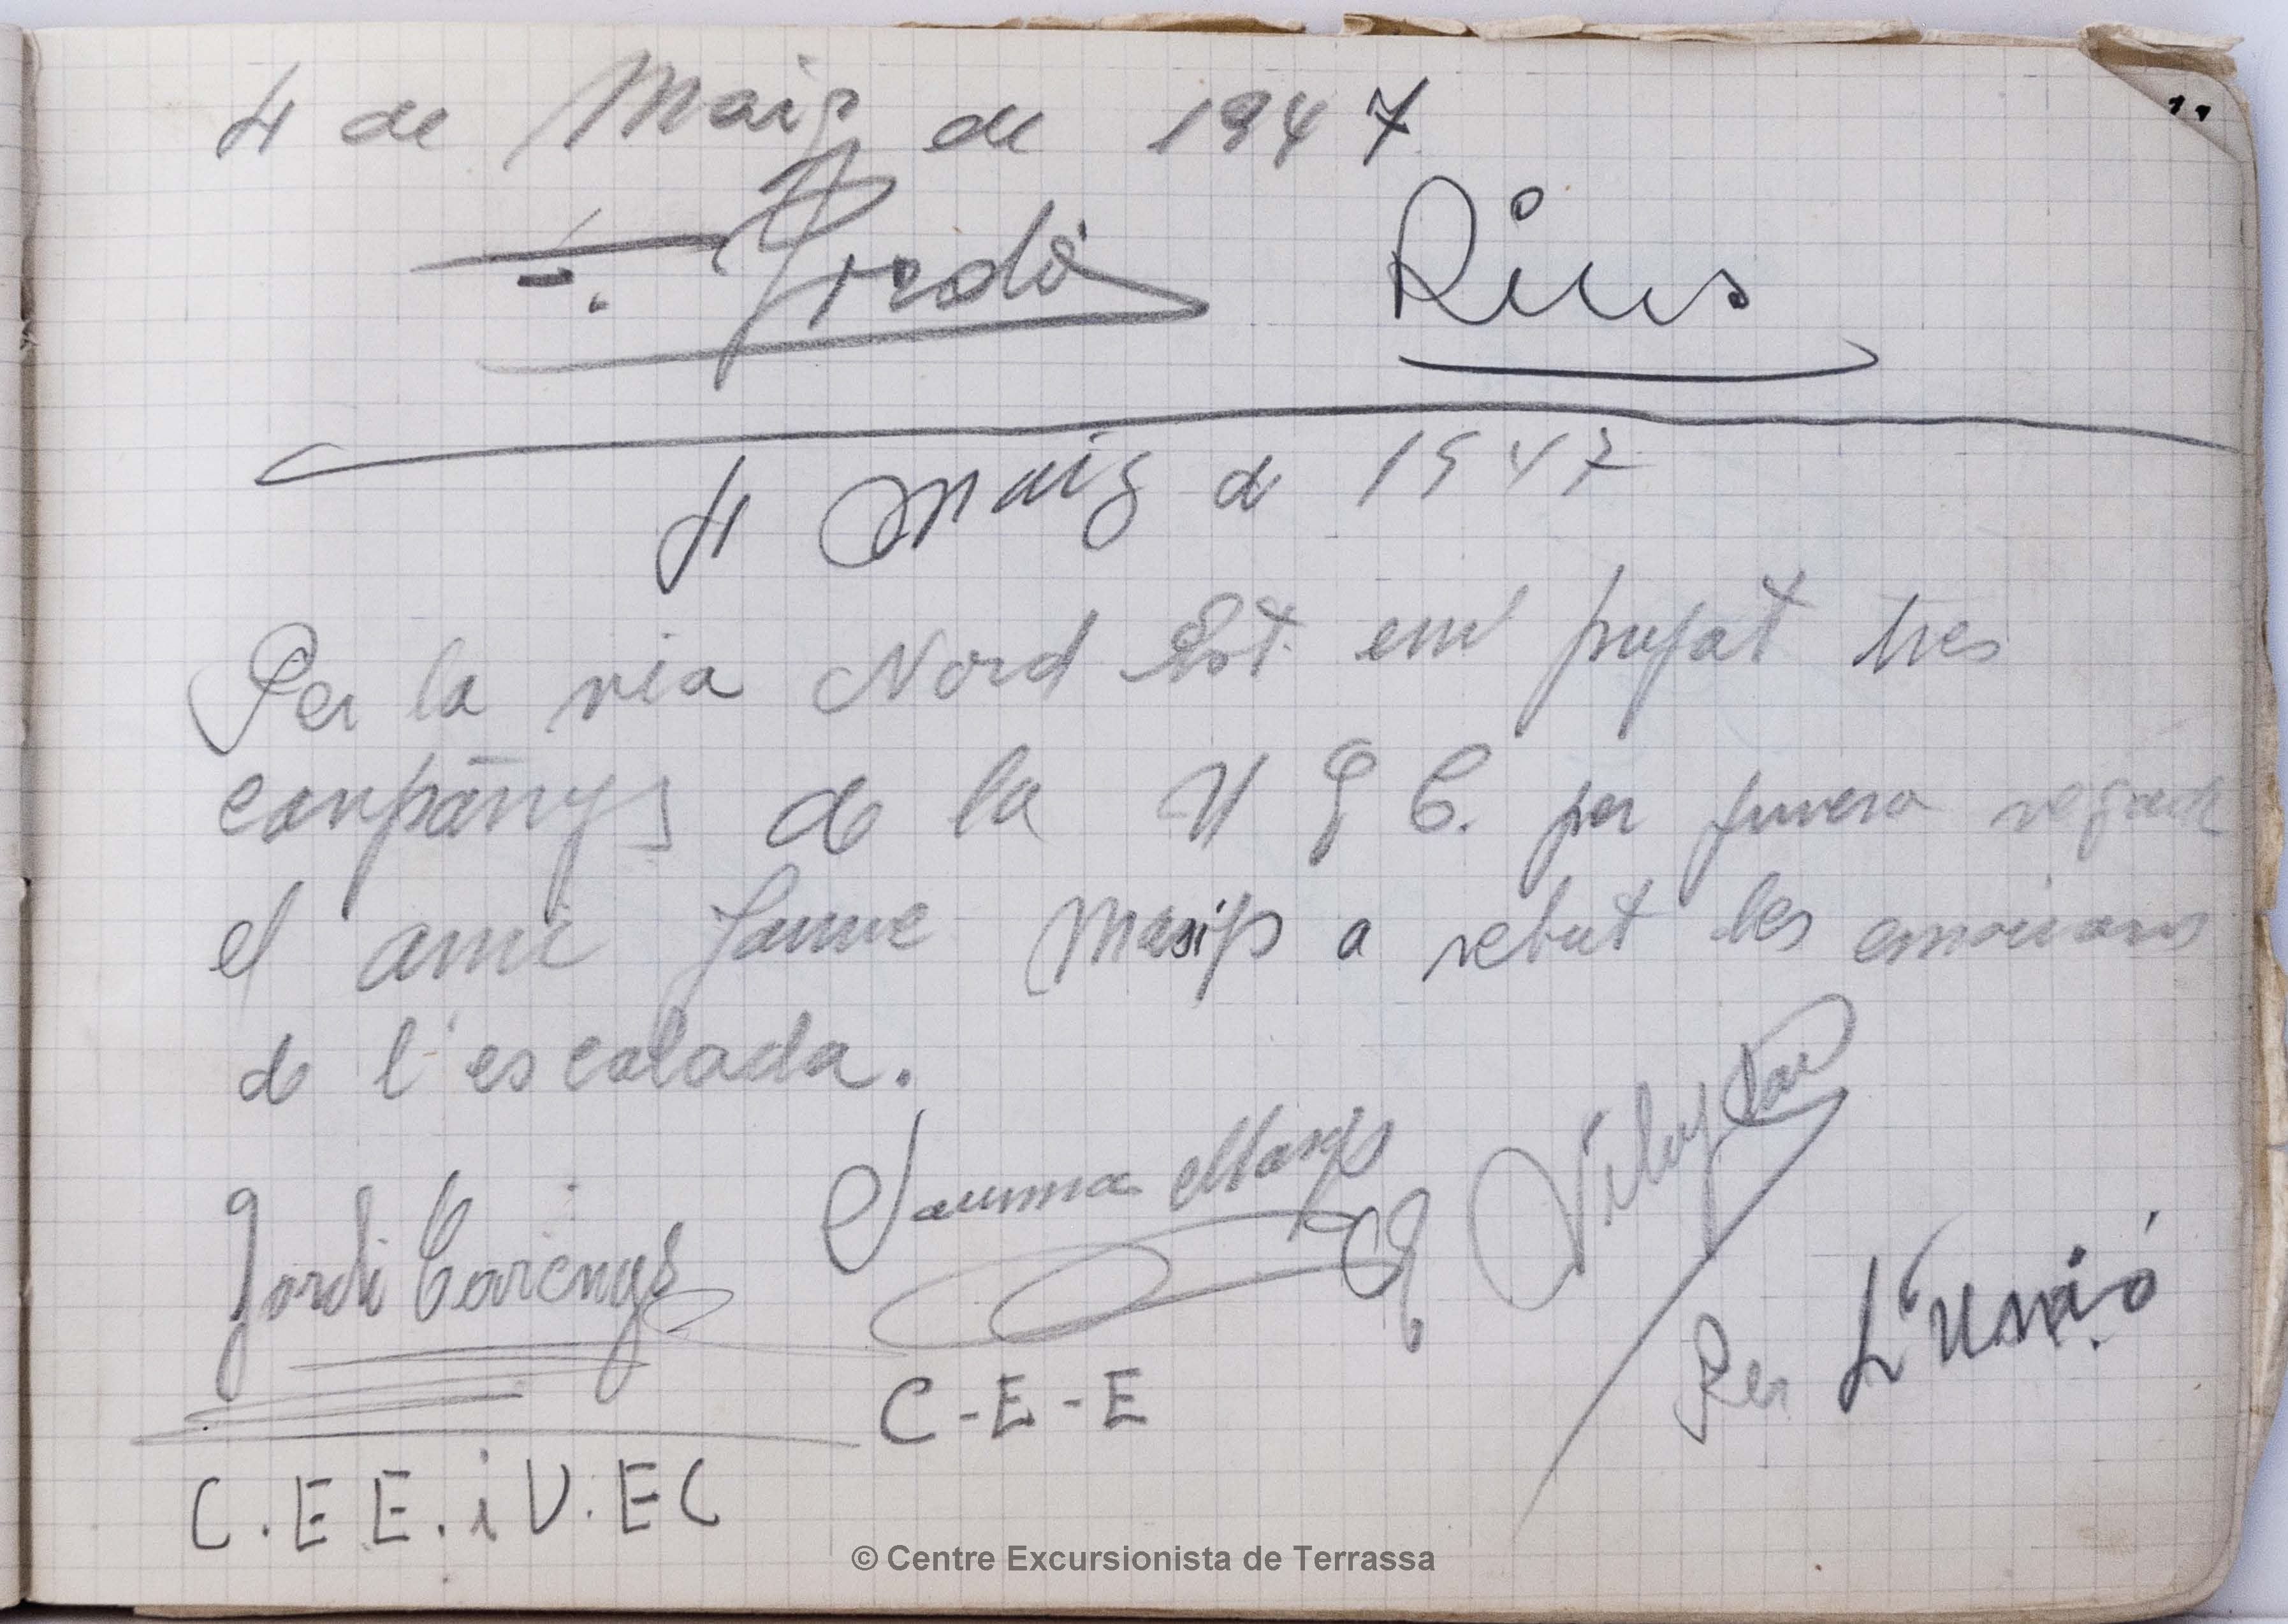 4 de Maig de 1947
Rius
4 Maig de 1947
Per la via Nord Est em pujat tres
companys de la U E C. per primera vegada
el amic Jaume Masip a rebut les emocions
de l'escalada.
Jordi Carenys Jaume Masip
Per L'Unió
C-E-E
C.E E. i U.EC
© Centre Excursionista de Terrassa